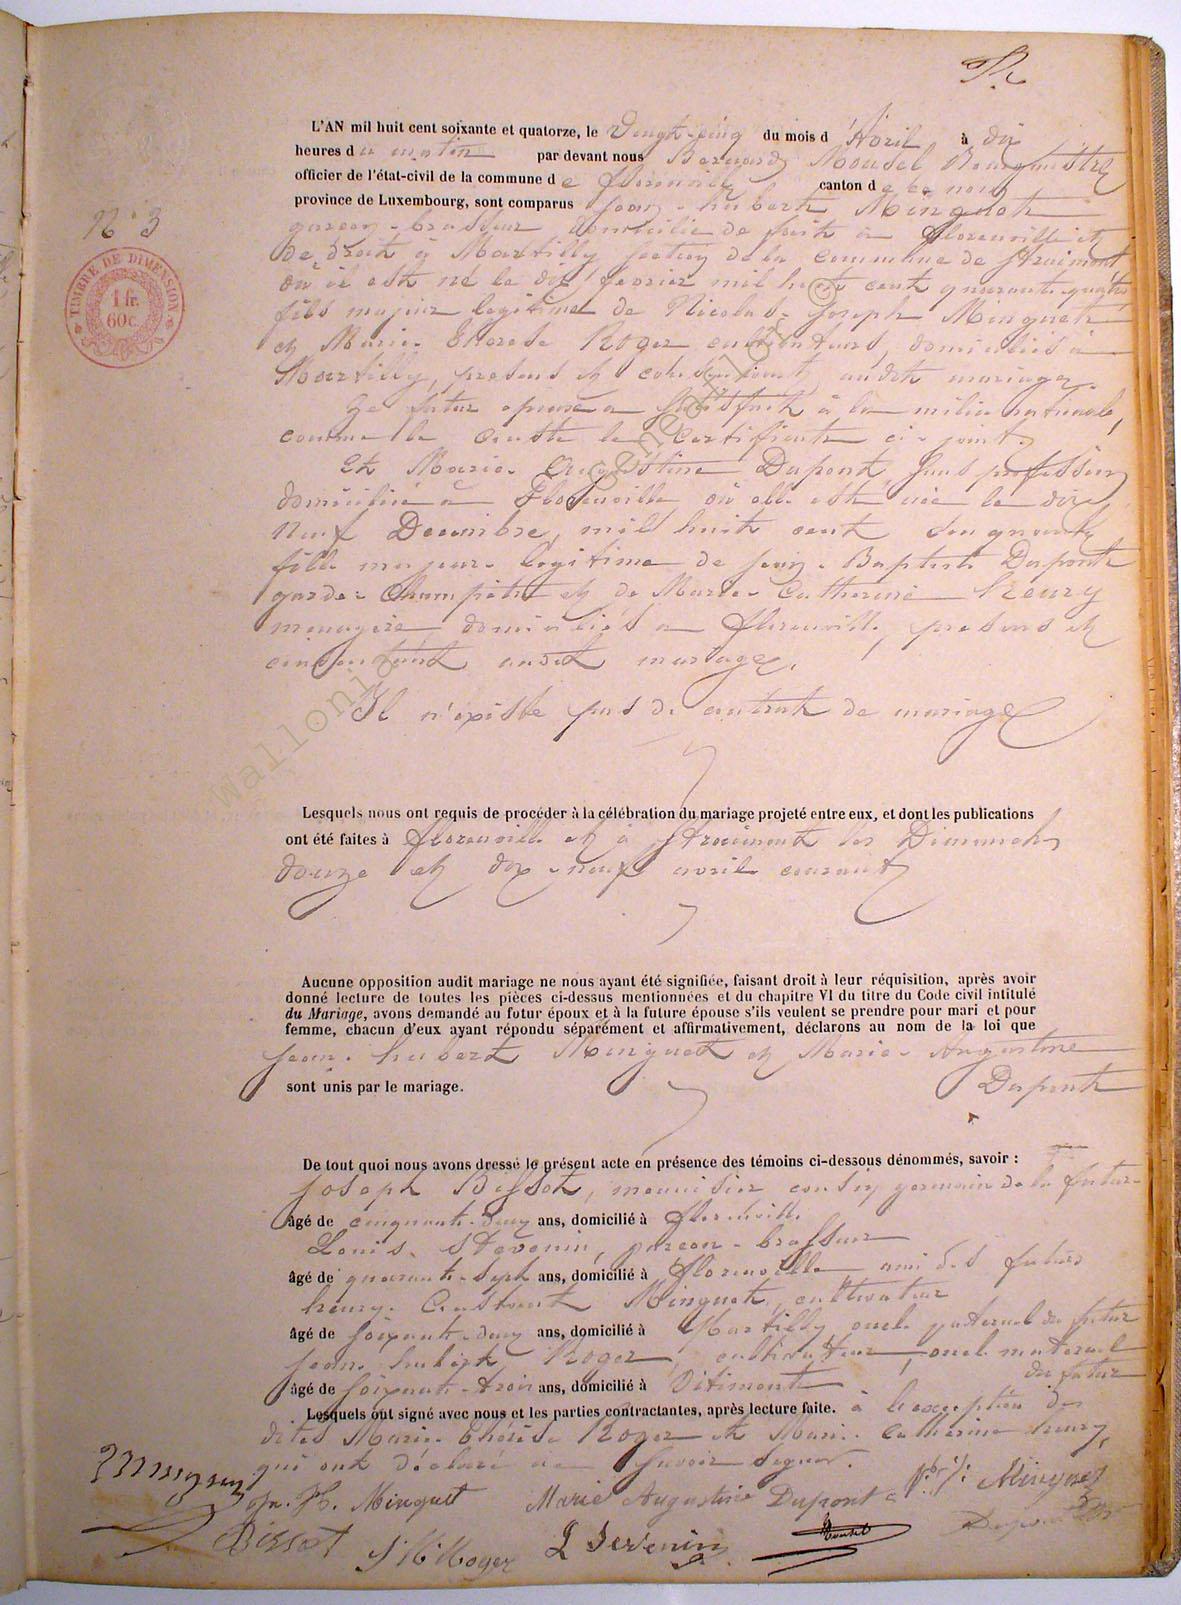 N° 3
TIMBRE DE DIMENSION
1 fr.
60c.
L'AN mil huit cent soixante et quatorze, le vingt-cinq du mois d'Avril à dix
heures du matin par devant nous Bernard Mousel Bourgmestre
officier de l'état-civil de la commune de florenville canton de ce nom
province de Luxembourg, sont comparus Jean-hubert Minguet
garçon-brasseur domicilié de fait à florenville et
de droit à Martilly section de la commune de Straimont
où il est né le dix février mil huit cent quarante quatre
fils majeur légitime de Nicolas-Joseph Minguet
et Marie-Thérèse Roger cultivateurs, domiciliés à
Martilly, présens et consentants audit mariage.
Le futur époux a satisfait à la milice nationale,
comme le conste le certificat ci-joint.
Et Marie-Augustine Dupont, sans profession
domiciliée à Florenville où elle est née le dix
neuf Décembre, mil huit cent cinquante
fille majeure légitime de Jean-Baptiste Dupont
garde-Champêtre et de Marie-Catherine henry
ménagère domiciliés à florenville, présens et
consentant audit mariage.
Il n'existe pas de contrat de mariage
Lesquels nous ont requis de procéder à la célébration du mariage projeté entre eux, et dont les publications
ont été faites à florenville et à Straimont les Dimanches
douze et dix-neuf avril courant
Aucune opposition audit mariage ne nous ayant été signifiée, faisant droit à leur réquisition, après avoir
donné lecture de toutes les pièces ci-dessus mentionnées et du chapitre VI du titre du Code civil intitulé
du Mariage, avons demandé au futur époux et à la future épouse s'ils veulent se prendre pour mari et pour
femme, chacun d'eux ayant répondu séparément et affirmativement, déclarons au nom de la loi que
Jean-hubert Minguet et Marie-Augustine
Dupont
sont unis par le mariage.
De tout quoi nous avons dressé le présent acte en présence des témoins ci-dessous dénommés, savoir :
Joseph Bissot, menuisier cousin germain de la future
âgé de cinquante-deux ans, domicilié à florenville
Louis Stévenin, garçon-brasseur
âgé de quarante-sept ans, domicilié à florenville ami des futurs
henry-Constant Minguet, cultivateur
âgé de soixante-deux ans, domicilié à Martilly oncle paternel du futur
Jean-hubert Roger, cultivateur, oncle maternel
du futur
âgé de soixante-trois ans, domicilié à Ottimont
Lesquels ont signé avec nous et les parties contractantes, après lecture faite. à l'exception des
dites Marie-Thérèse Roger et Marie-Catherine henry,
qui ont déclaré ne savoir signer.
J. H. Minguet Marie Augustine Dupont N: J: Minguet
Bissot J H Roger L Stevenin Mousel Dupont
Wallonie Généalogie ©